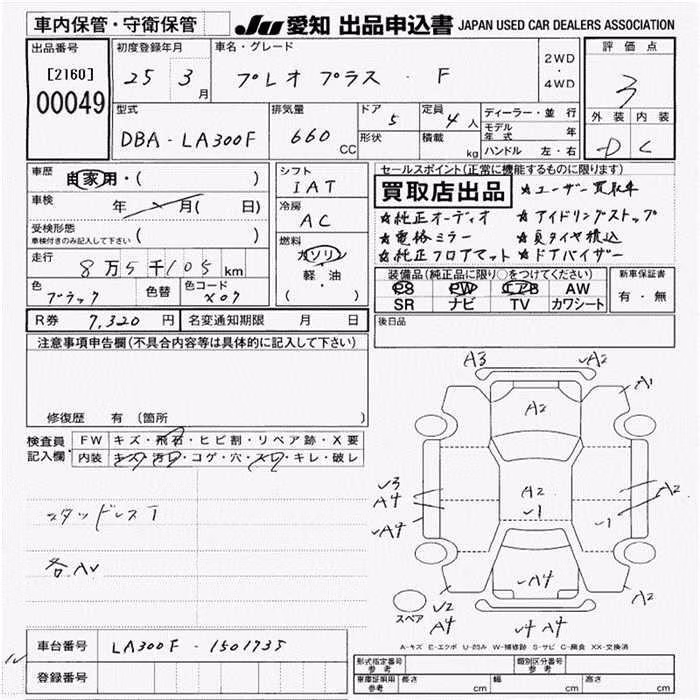 車内保管・守衛保管
JU 愛知 出品申込書 JAPAN USED CAR DEALERS ASSOCIATION
出品番号
[2160]
00049
初度登録年月
25 3月
車名・グレード
プレオ プラス・F
2WD・4WD
評価点
3
外装 内装
D C
型式
DBA-LA300F
排気量
660 CC
ドア
5
形状
定員
4人
積載
kg
ディーラー・並行
モデル年式 年
ハンドル 左・右
車歴 自家用・( )
車検 年 月( 日)
受検形態
車検付きのみ記入して下さい ( )
走行 8万5千105km
色 ブラック 色替 色コード X07
シフト
IAT
冷房
AC
燃料
ガソリン
軽・油
( )
セールスポイント(正常に機能するものに限ります)
買取店出品 ★ユーザー買取車
★純正オーディオ ★アイドリングストップ
★電格ミラー ★夏タイヤ積込
★純正フロアマット ★ドアバイザー
装備品(純正品に限り○をつけてください)
PS PW エアB AW
SR ナビ TV カワシート
新車保証書
有・無
R券 7,320円 名変通知期限 月 日
後日品
注意事項申告欄(不具合内容等は具体的に記入して下さい)
修復歴 有 (箇所 )
検査員記入欄
FW キズ・飛石・ヒビ割・リペア跡・X要
内装 キズ・汚レ・コゲ・穴・スレ・キレ・破レ
スタッドレスT
各AV
A3 √A2
A1
A2
√3
A4
A2
√1
A2
√A4
√1
√A4
√2
A4
A2
√4 A4
スペア
A-キズ E-エクボ U-凹み W-補修跡 S-サビ C-腐食 XX-交換済
車台番号 LA300F-1501735
登録番号
形式指定番号 参考
類別区分番号 参考
車庫証明用 参考 長さ cm 幅 cm 高さ cm